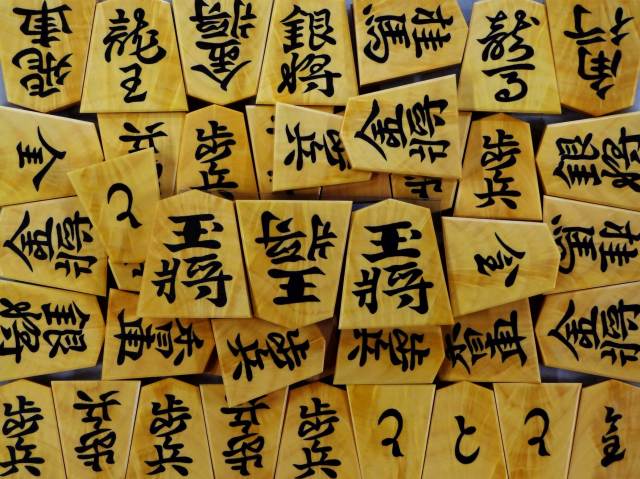 飛車
龍王
金将
銀将
桂馬
龍馬
角行
全
歩兵
歩兵
歩兵
金将
歩兵
銀将
金将
と
玉将
王将
玉将
全
桂馬
銀将
香車
歩兵
歩兵
香車
金将
歩兵
歩兵
歩兵
歩兵
歩兵
と
と
と